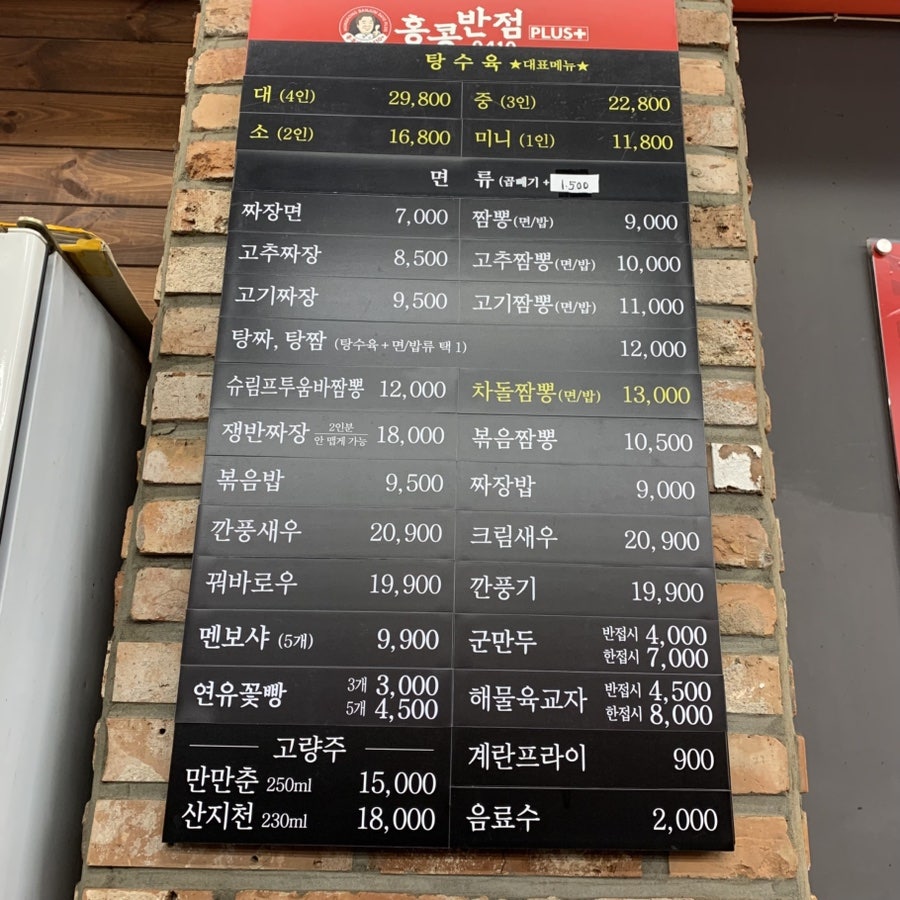 홍콩반점 PLUS+
0410
탕수육 ★대표메뉴★
대 (4인) 29,800 중 (3인) 22,800
소 (2인) 16,800 미니 (1인) 11,800
면 류 (곱빼기 + 1.500
짜장면 7,000 짬뽕(면/밥) 9,000
고추짜장 8,500 고추짬뽕(면/밥) 10,000
고기짜장 9,500 고기짬뽕(면/밥) 11,000
탕짜, 탕짬 (탕수육 + 면/밥류 택 1) 12,000
슈림프투움바짬뽕 12,000 차돌짬뽕(면/밥) 13,000
쟁반짜장 2인분 안 맵게 가능 18,000 볶음짬뽕 10,500
볶음밥 9,500 짜장밥 9,000
깐풍새우 20,900 크림새우 20,900
꿔바로우 19,900 깐풍기 19,900
멘보샤 (5개) 9,900 군만두 반접시 4,000
한접시 7,000
연유꽃빵 3개 3,000 해물육교자 반접시 4,500
5개 4,500 한접시 8,000
고량주 계란프라이 900
만만춘 250ml 15,000
산지천 230ml 18,000 음료수 2,000